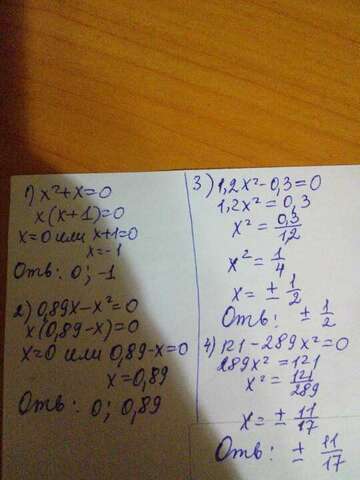 1) x²+x=0
x(x+1)=0
x=0 или x+1=0
x=-1
Отв: 0; -1
2) 0,89x-x²=0
x(0,89-x)=0
x=0 или 0,89-x=0
x=0,89
Отв: 0; 0,89
3) 1,2x²-0,3=0
1,2x²=0,3
x²=0,3/1,2
x²=1/4
x=±1/2
Отв: ±1/2
4) 121-289x²=0
289x²=121
x²=121/289
x=±11/17
Отв: ±11/17